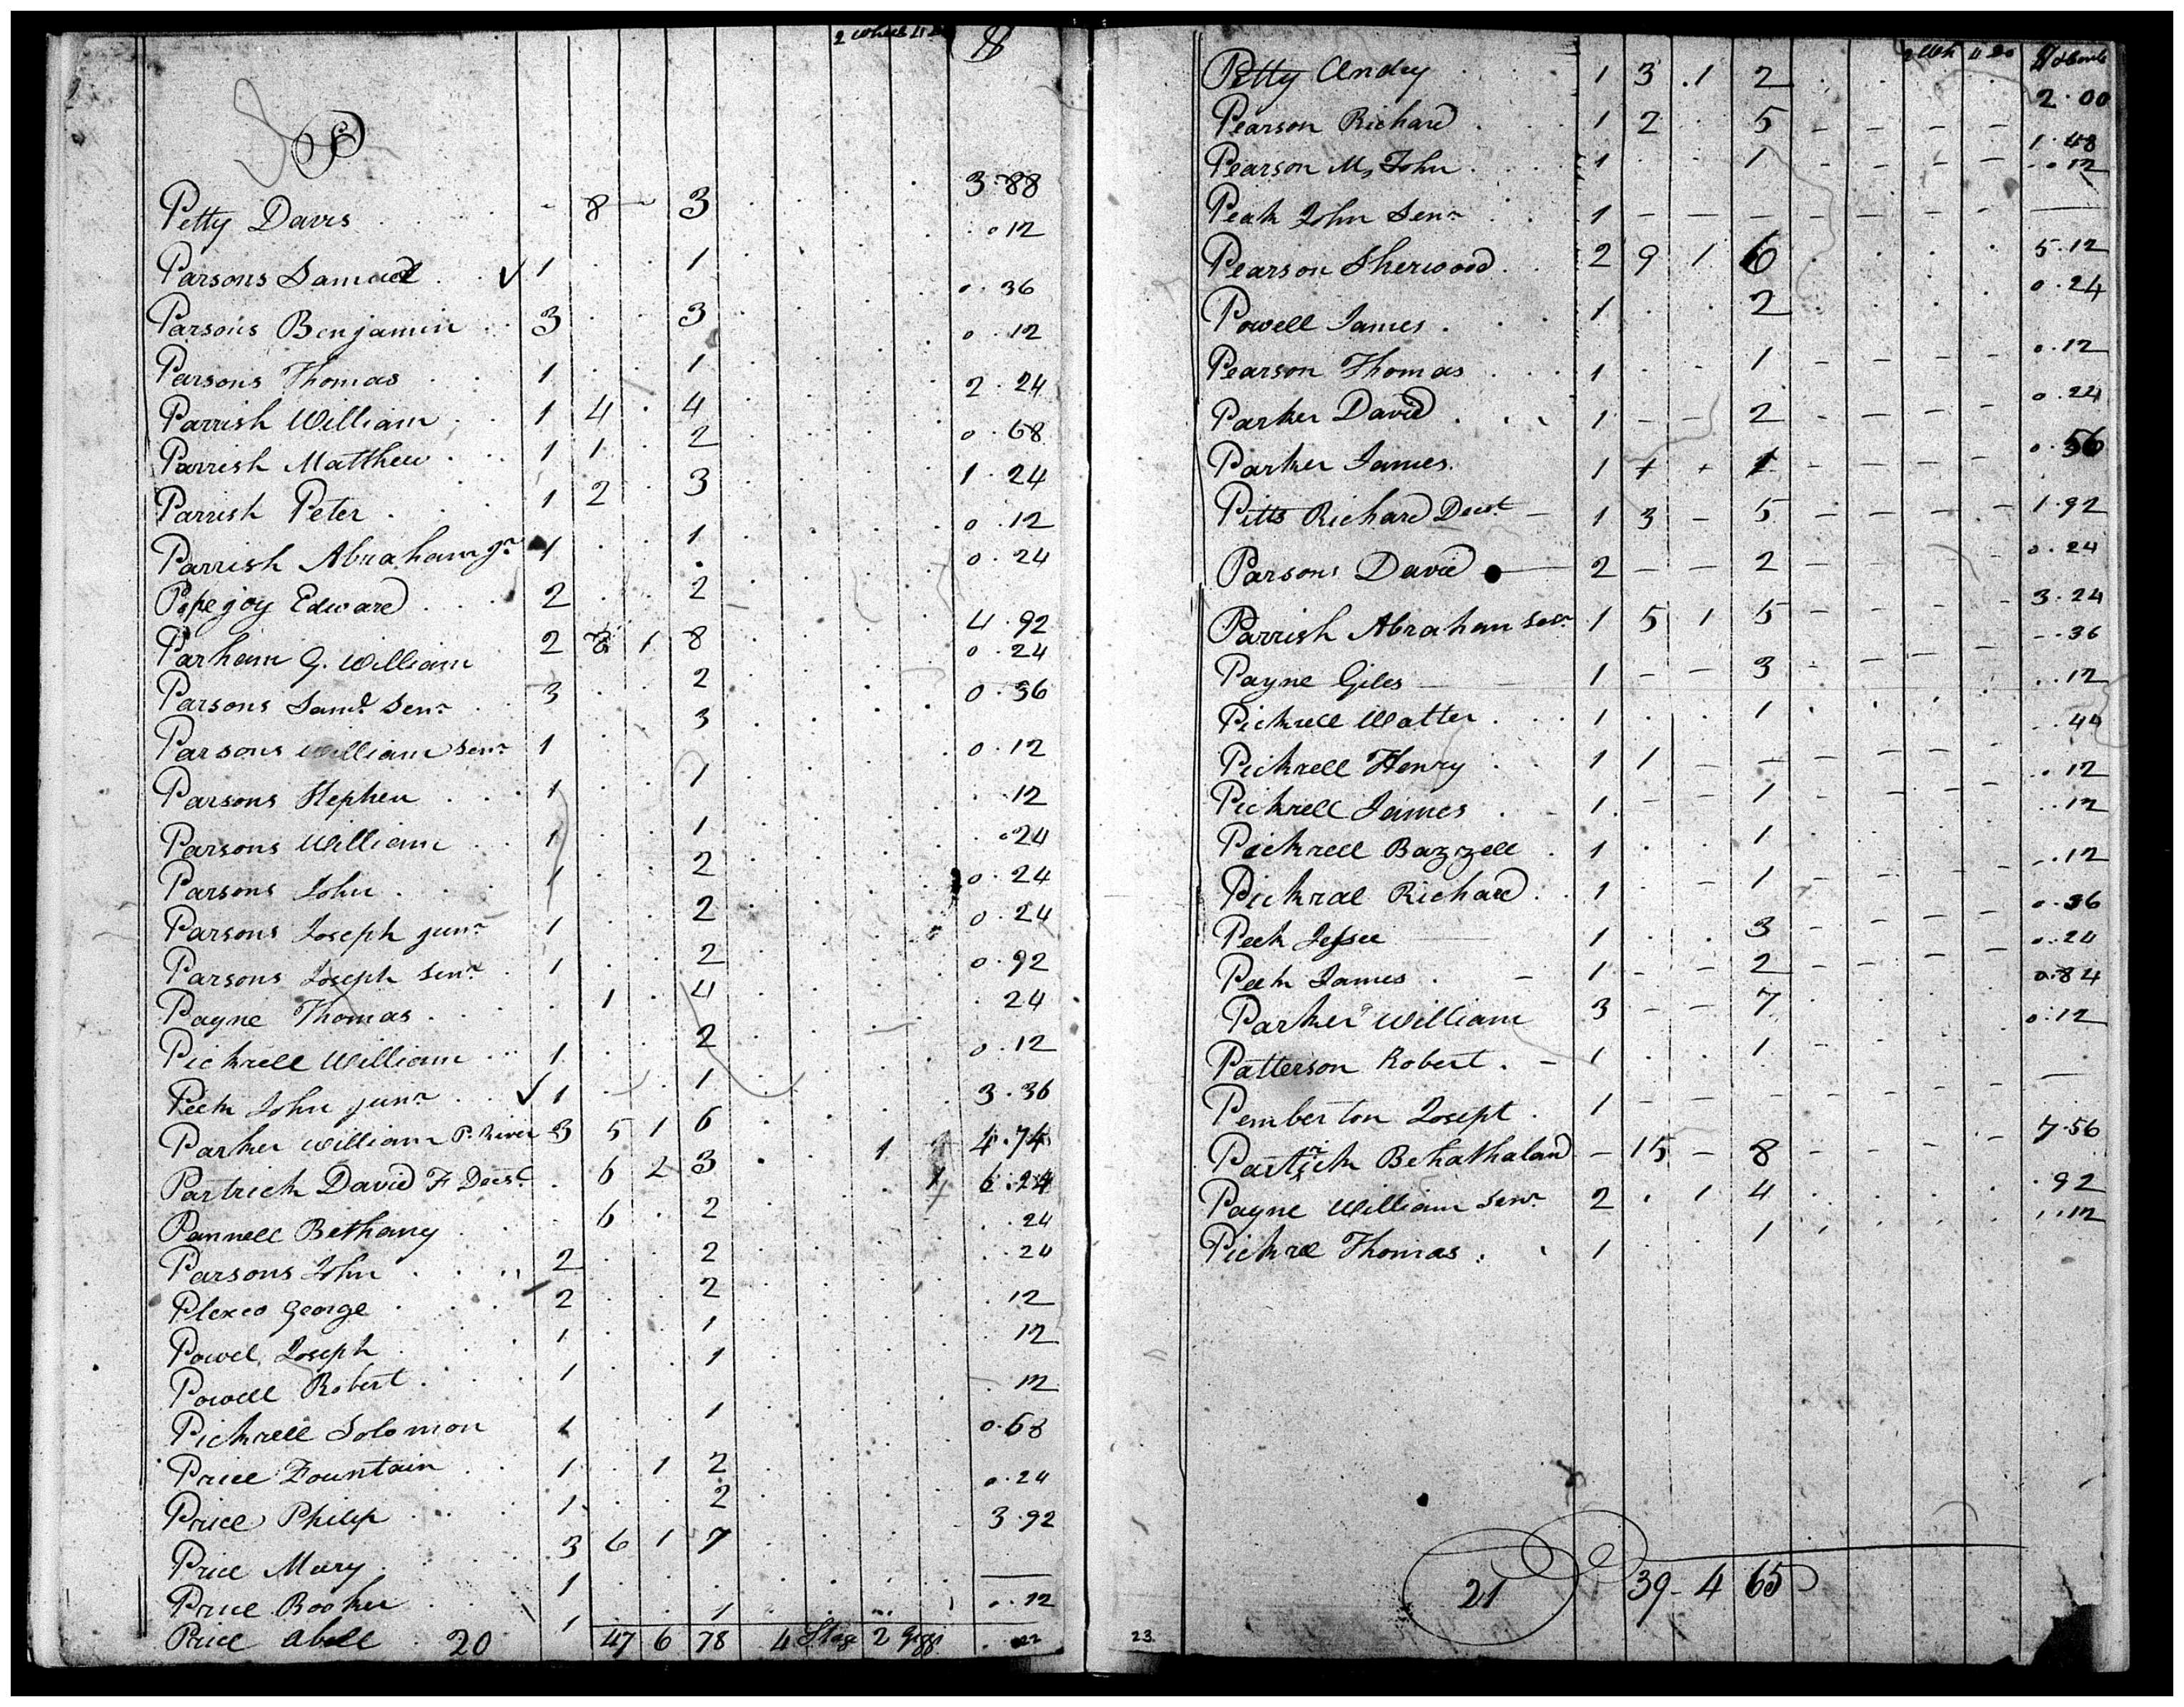 2 Wheel
P
Petty Davis - 8 - 3 3.88
Parsons Samuel ✓ 1 . . 1 .012
Parsons Benjamin 3 . . 3 0.36
Parsons Thomas 1 . . 1 0.12
Parrish William 1 4 . 4 2.24
Parrish Matthew 1 1 . 2 0.68
Parrish Peter 1 2 . 3 1.24
Parrish Abraham Jr 1 . . 1 0.12
Popejoy Edward 2 . . 2 0.24
Parham G. William 2 8 1 8 4.92
Parsons Saml. Senr 3 . . 2 0.24
Parsons William Senr 1 . . 3 0.36
Parsons Stephen 1 . . 1 0.12
Parsons William 1 . . 1 .12
Parsons John 1 . . 2 .024
Parsons Joseph junr 1 . . 2 0.24
Parsons Joseph Senr 1 . . 2 0.24
Payne Thomas . 1 . 4 0.92
Pickrell William 1 . . 2 .24
Peek John junr ✓ 1 - . 1 0.12
Parker William P. River 3 5 1 6 3.36
Partrick David F Decsd . 6 2 3 . . 1 4.74
Pannell Bethany . 6 . 2 1 6.24
Parsons John 2 . . 2 .24
Plexco George 2 . . 2 .24
Powel Joseph 1 . . 1 .12
Powell Robert 1 . . 1 12
Pickrell Solomon 1 . . 1 .12
Price Fountain 1 . 1 2 0.68
Price Philip 1 . . 2 0.24
Price Mary 3 6 1 7 3.92
Price Booker 1 . . . —
Price Abell 1 . . 1 0.12
20 47 6 78 4 Stage 2 Giggs
Petty Andey 1 3 .1 2 2.00
Pearson Richard 1 2 . 5 - - - - 1.48
Pearson M, John 1 . . 1 - - - - .012
Peak John Senr 1 - - - - - - - —
Pearson Sherwood 2 9 1 6 5.12
Powell James 1 . . 2 0.24
Pearson Thomas 1 . - 1 - - - - 0.12
Parker David 1 - - 2 - - - - 0.24
Parker James 1 + + 1 - - - - 0.56
Pitts Richard Decst 1 3 - 5 - - - - 1.92
Parsons David 2 - - 2 - 0.24
Parrish Abraham Senr 1 5 1 5 - - - - 3.24
Payne Giles 1 - - 3 - - - - -.36
Pickrell Watter 1 . . 1 ..12
Pickrell Henry 1 1 - - - - - - -.44
Pickrell James 1 - - 1 - - - - ..12
Pickrell Bazzell 1 . . 1 ..12
Pickral Richard 1 . - 1 - - - - -.12
Peek Jessee 1 . . 3 - - - - 0.36
Peek James 1 - - 2 - - - - 0.24
Parker William 3 - - 7 0.84
Patterson Robert 1 . . 1 - - 0.12
Pemberton Joseph 1 - - - - - - - —
Partrick Behathaland - 15 - 8 - - . - 7.56
Payne William Senr 2 . 1 4 .92
Pickrel Thomas 1 . . 1 ..12
21 39 - 4 65
23